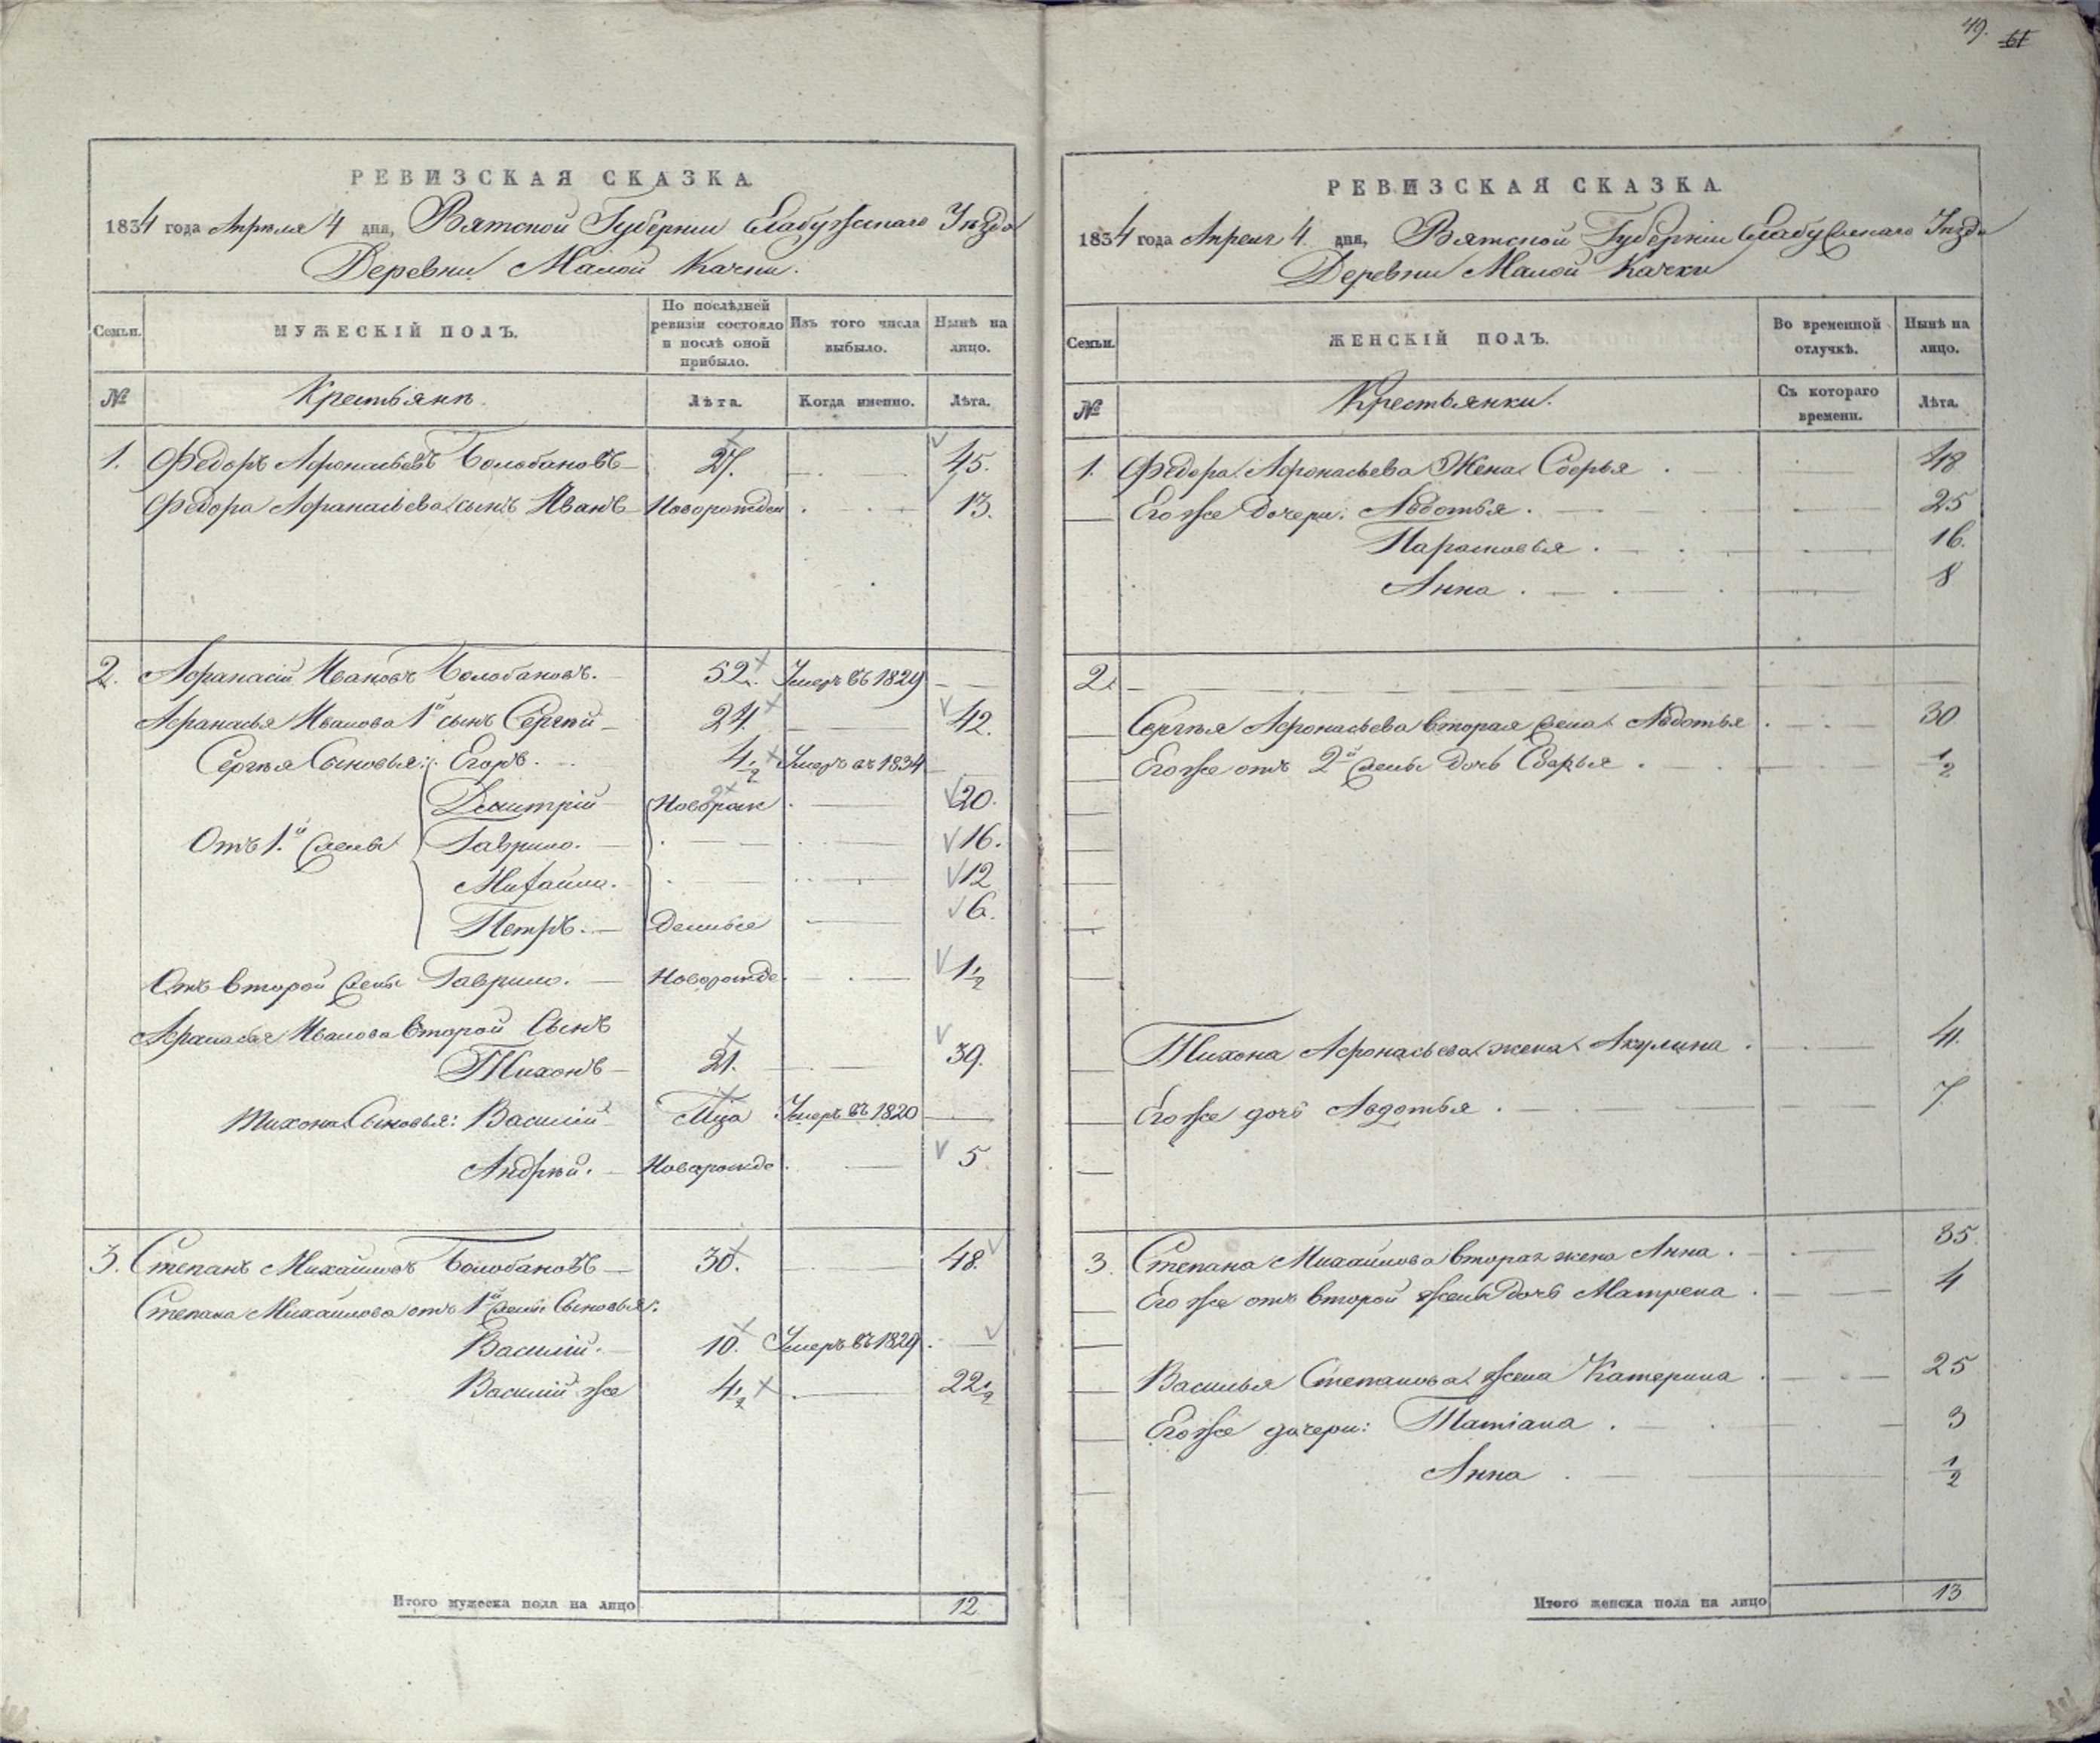 49. 61
РЕВИЗСКАЯ СКАЗКА
1834 года Апреля 4 дня, Вятской Губернии Елабужскаго Уезда
Деревни Малой Качки.
Семьи.
МУЖЕСКІЙ ПОЛЪ.
По послѣдней ревизіи состояло и послѣ оной прибыло.
Изъ того числа выбыло.
Нынѣ на лицо.
№ Крестьянъ. Лѣта. Когда именно. Лѣта.
1. Федоръ Афонасьевъ Болобановъ 27. 45.
Федора Афанасьева сынъ Иванъ Новорожден 13.
2. Афанасій Ивановъ Болобановъ. 52. Умеръ въ 1829
Афанасья Иванова 1й сынъ Сергѣй 24. 42.
Сергѣя Сыновья: Егоръ. 4 1/2 Умеръ въ 1834
Дмитрій Новорож 20.
Отъ 1й жены Гаврило. 16.
Михайло. 12
Петръ. Далиѣе 6.
Отъ второй жены Гаврило. Новорожде. 1 1/2
Афанасья Иванова второй Сынъ
Тихонъ 21. 39.
Тихона Сыновья: Василій Умеръ въ 1820
Андрѣй. Новорожде 5
3. Степанъ Михайловъ Болобановъ 30. 48.
Степана Михайлова отъ 1й жены Сыновья:
Василій. 10. Умеръ въ 1829.
Василій же 4 1/2 22 1/2
Итого мужеска пола на лицо 12
РЕВИЗСКАЯ СКАЗКА
1834 года Апреля 4. дня, Вятской Губерніи Елабужскаго Уезда
Деревни Малой Качки
Семьи.
ЖЕНСКІЙ ПОЛЪ.
Во временной отлучкѣ.
Нынѣ на лицо.
№ Крестьянки. Съ котораго времени. Лѣта.
1. Федора Афонасьева Жена Софья 48
Его же дочери: Авдотья. 25
Парасковья. 16.
Анна. 8
2.
Сергѣя Афонасьева вторая жена Авдотья. 30
Его же отъ 2й жены дочь Софья. 1/2
Тихона Афонасьева жена Акулина. 41.
Его же дочь Авдотья. 7
3. Степана Михайлова вторая жена Анна. 35.
Его же отъ второй жены дочь Матрена. 4
Василья Степанова жена Катерина. 25
Его же дочери: Татіана. 3
Анна 1/2
Итого женска пола на лицо 13